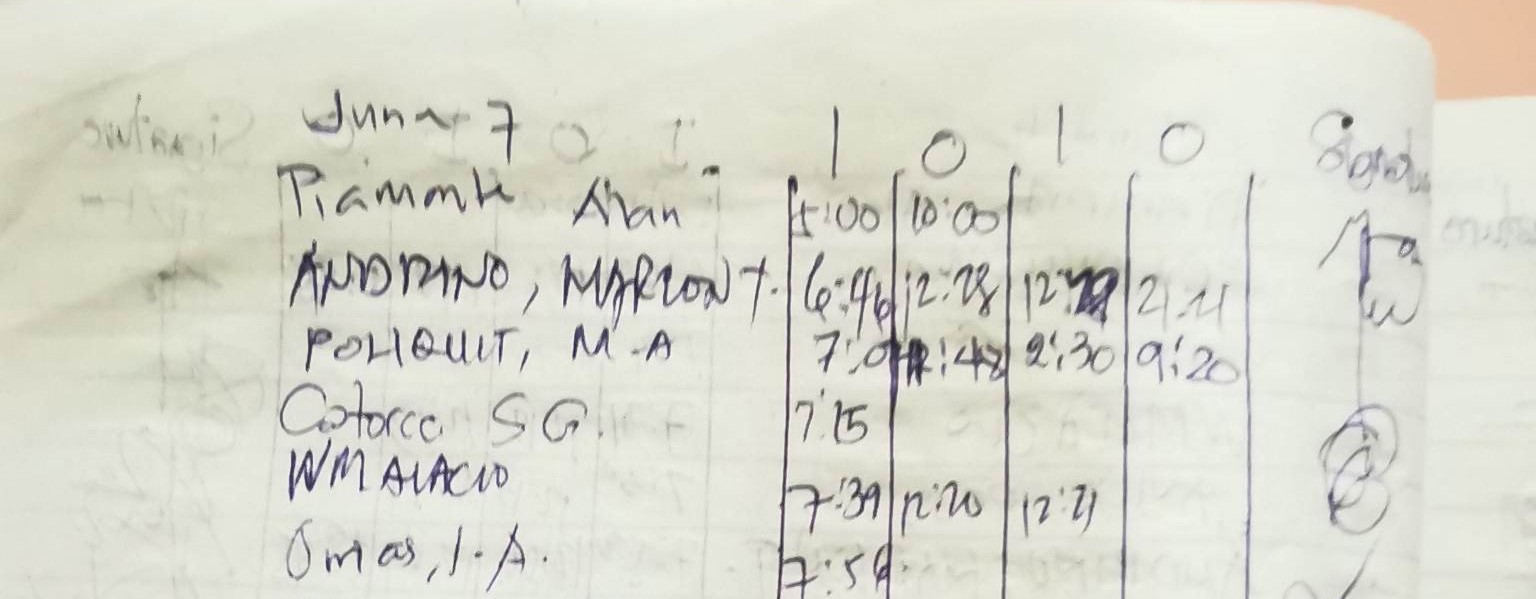 June 7 I O I O
Piamonte Alan 5:00 10:00
ANDRINO, MARLON T. 6:46 12:28 12:29 21:21
POLIQUIT, M.A 7:0 :48 2:30 9:20
Cotorco S G. 7:15
WMALACIO 7:39 12:20 12:21
Omas, I.A. 7:56